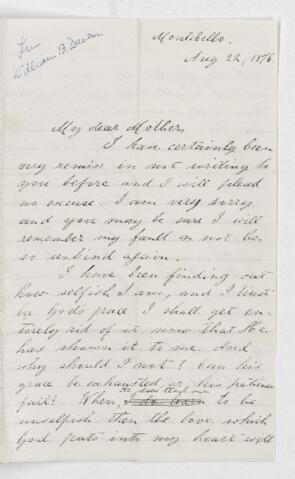 Montibello.
Aug 22, 1876.
William B.
My dear Mother,
I have certainly been
very remiss in not writing to
you before and I will plead
no excuse. I am very sorry
and you may be sure I will
remember my fault & not be
so unkind again.
I have been finding out
how selfish I am, and I trust
by Gods grace I shall get en-
tirely rid of it, now that He
has shown it to me. And
why should I not? Can his
grace be exhausted or his patience
fail? When to be
unselfish then the love which
God puts into my heart will